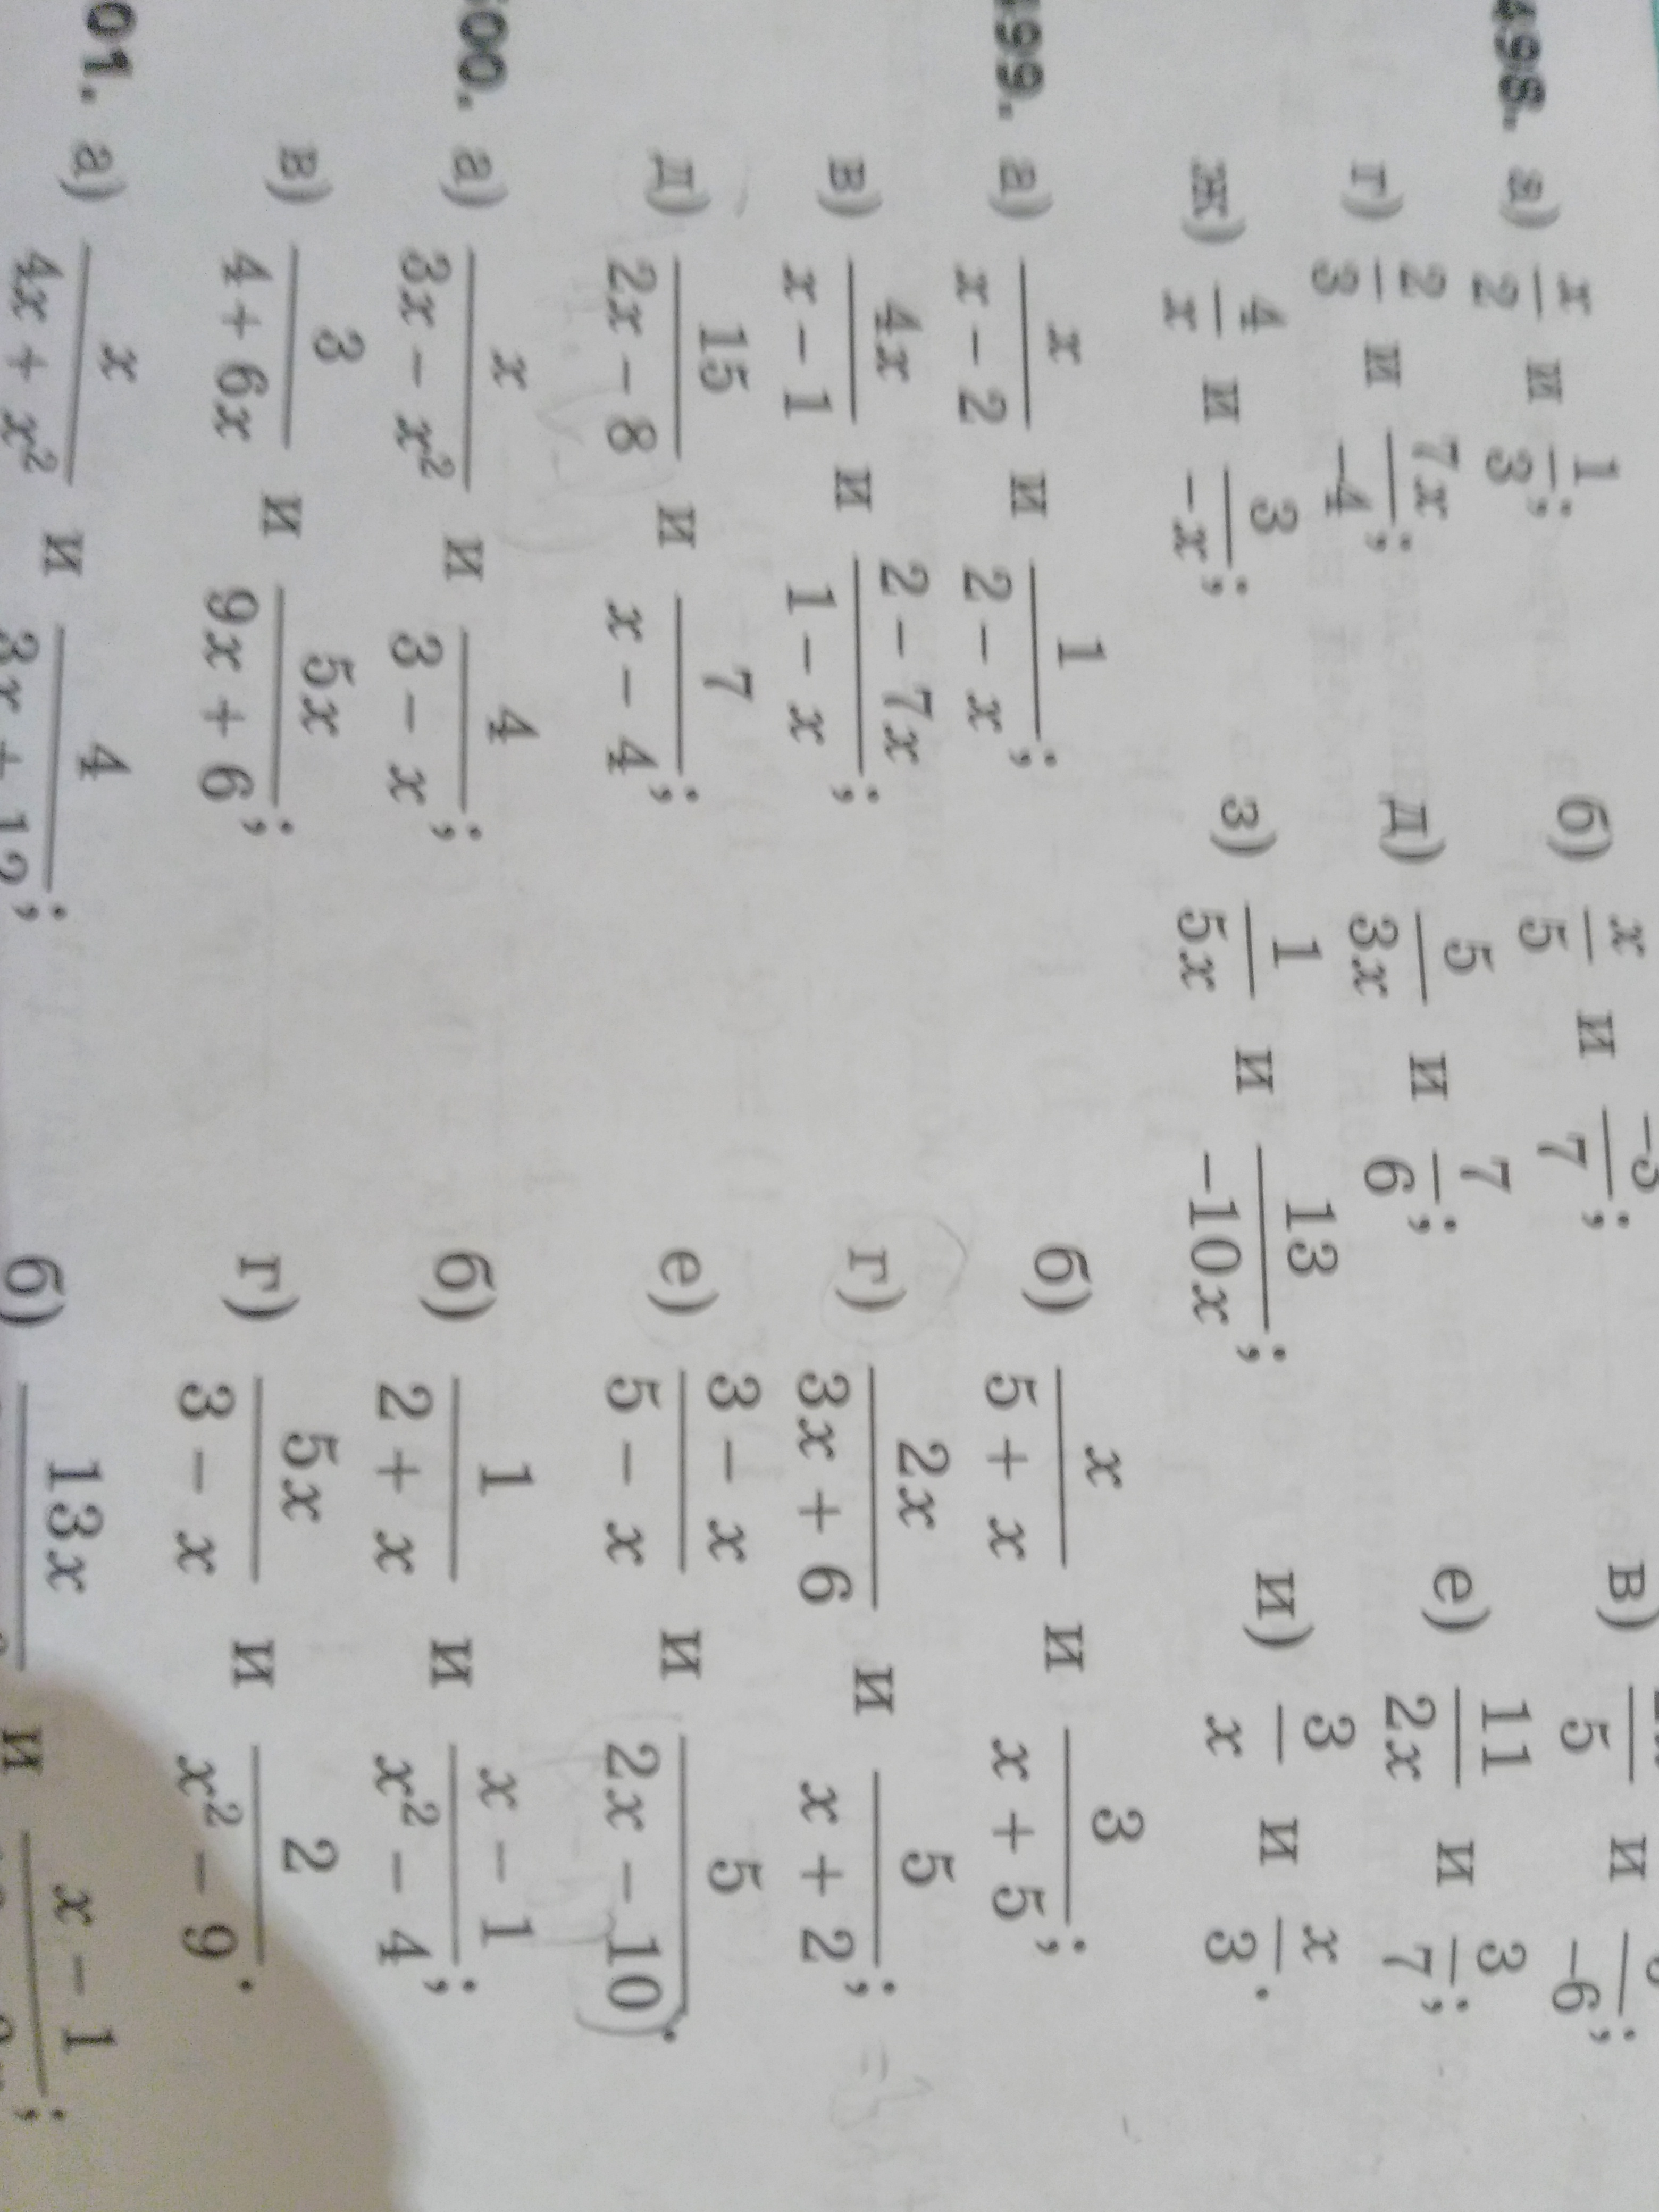 498. а) x/2 и 1/3; б) x/5 и -3/7; в) /5 и /-6;
г) 2/3 и 7x/-4; д) 5/3x и 7/6; е) 11/2x и 3/7;
ж) 4/x и 3/-x; з) 1/5x и 13/-10x; и) 3/x и x/3.
499. а) x/(x - 2) и 1/(2 - x); б) x/(5 + x) и 3/(x + 5);
в) 4x/(x - 1) и (2 - 7x)/(1 - x); г) 2x/(3x + 6) и 5/(x + 2);
д) 15/(2x - 8) и 7/(x - 4); е) (3 - x)/(5 - x) и 5/(2x - 10).
00. а) x/(3x - x²) и 4/(3 - x); б) 1/(2 + x) и (x - 1)/(x² - 4);
в) 3/(4 + 6x) и 5x/(9x + 6); г) 5x/(3 - x) и 2/(x² - 9).
01. а) x/(4x + x²) и 4/(3x + 12); б) 13x/ и (x - 1)/;